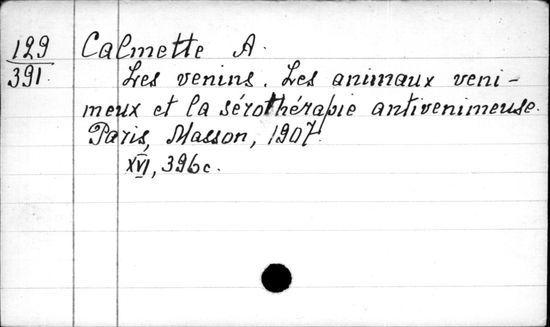 129
391
Calmette A.
Les venins. Les animaux veni-
meux et la sérothérapie antivenimeuse.
Paris, Masson, 1907.
XVI, 396 c.